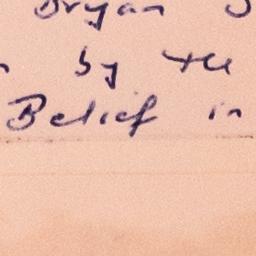 Bryan
by the
Belief in